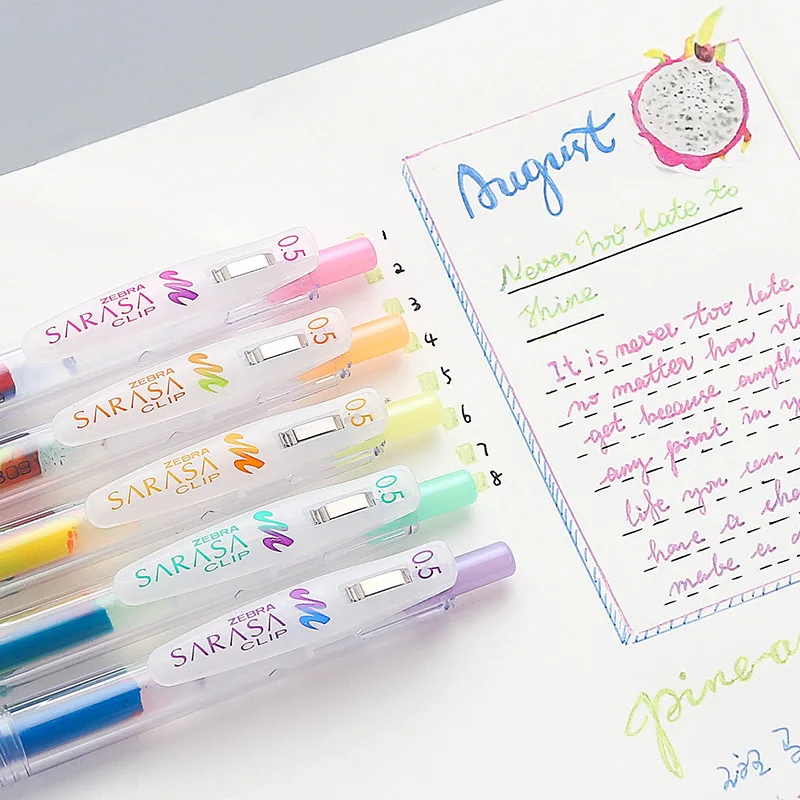 August
Never Too Late to
Shine
It is never too late
no matter how
get because
any point in
life you can
have a
make a
1
2
3
4
5
6
7
8
ZEBRA
SARASA
CLIP
0.5
ZEBRA
SARASA
CLIP
0.5
ZEBRA
SARASA
CLIP
0.5
ZEBRA
SARASA
CLIP
0.5
ZEBRA
SARASA
CLIP
0.5